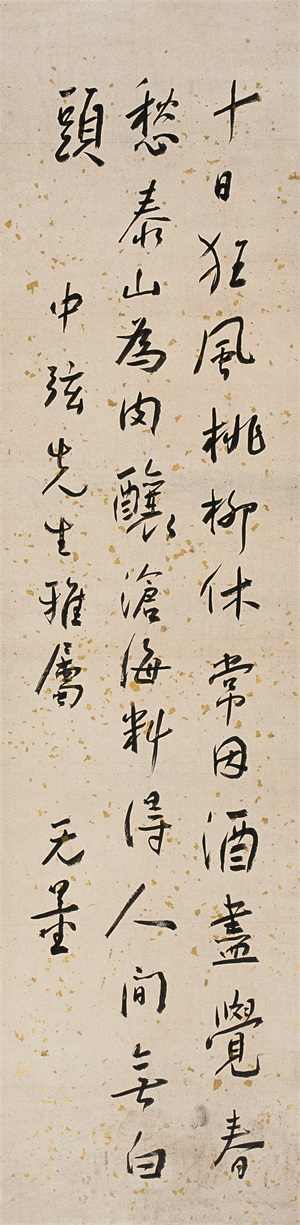 十日狂風桃柳休常因酒盡覺春
愁泰山為肉釀滄海料得人間無白
頭
中弦先生雅屬 无量